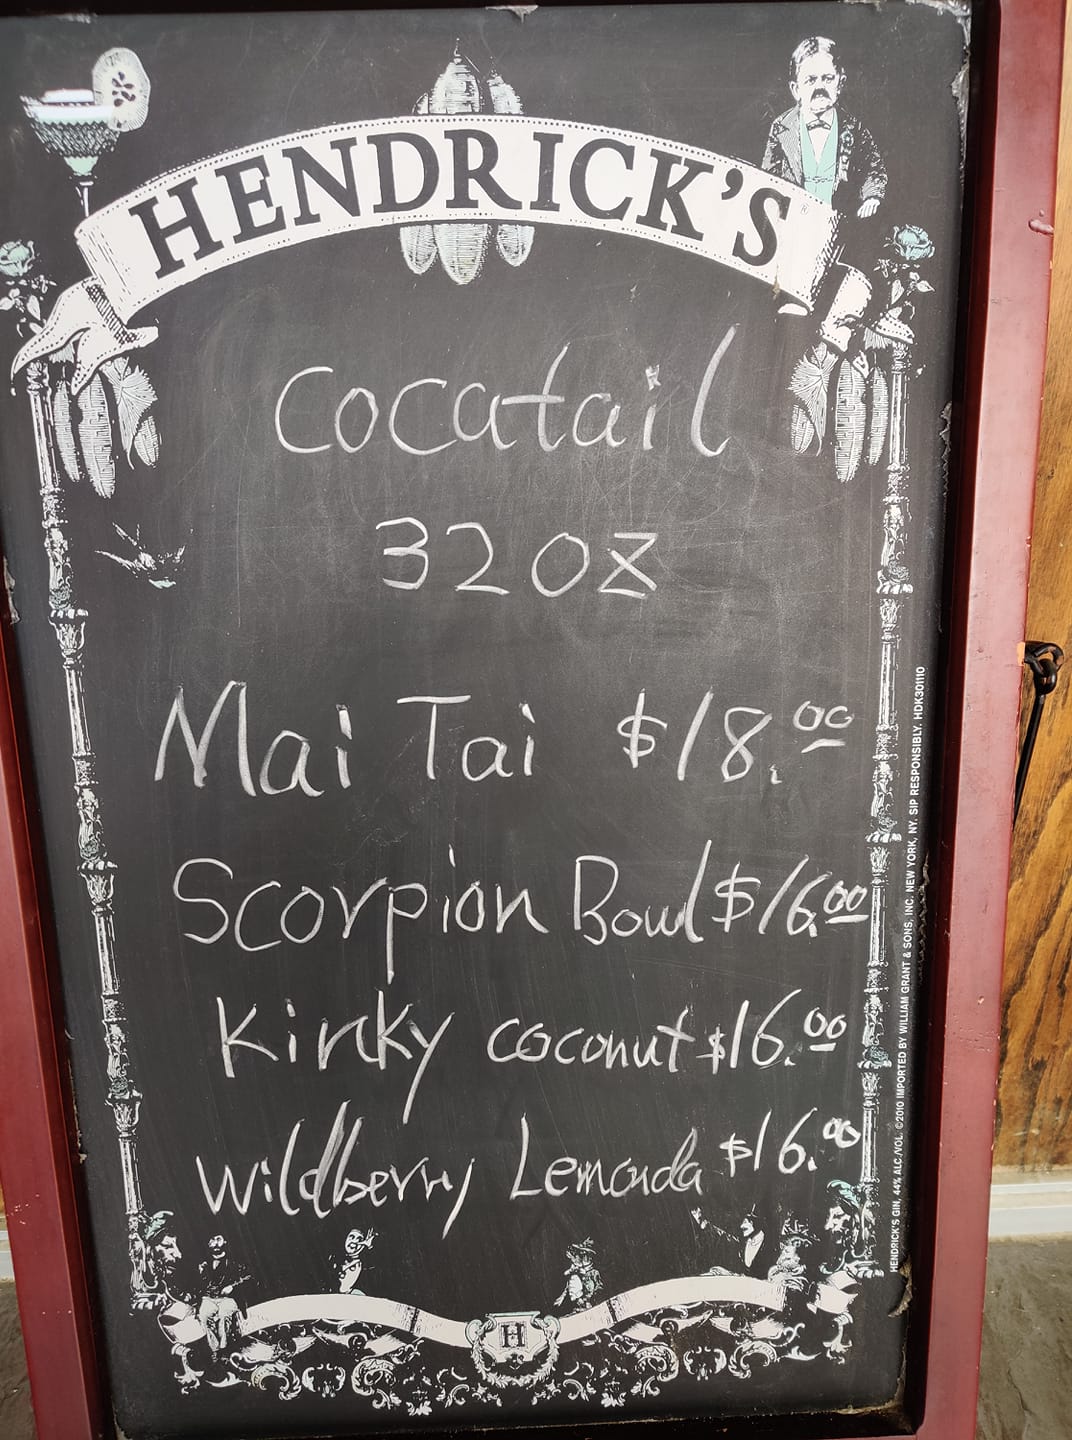 HENDRICK'S
Cocatail
32 OZ
Mai Tai $18.00
Scorpion Bowl $16.00
Kinky coconut $16.00
Wildberry Lemonada $16.00
H
HENDRICK'S GIN, 44% ALC./VOL. ©2010 IMPORTED BY WILLIAM GRANT & SONS, INC. NEW YORK, NY. SIP RESPONSIBLY. HDK301110